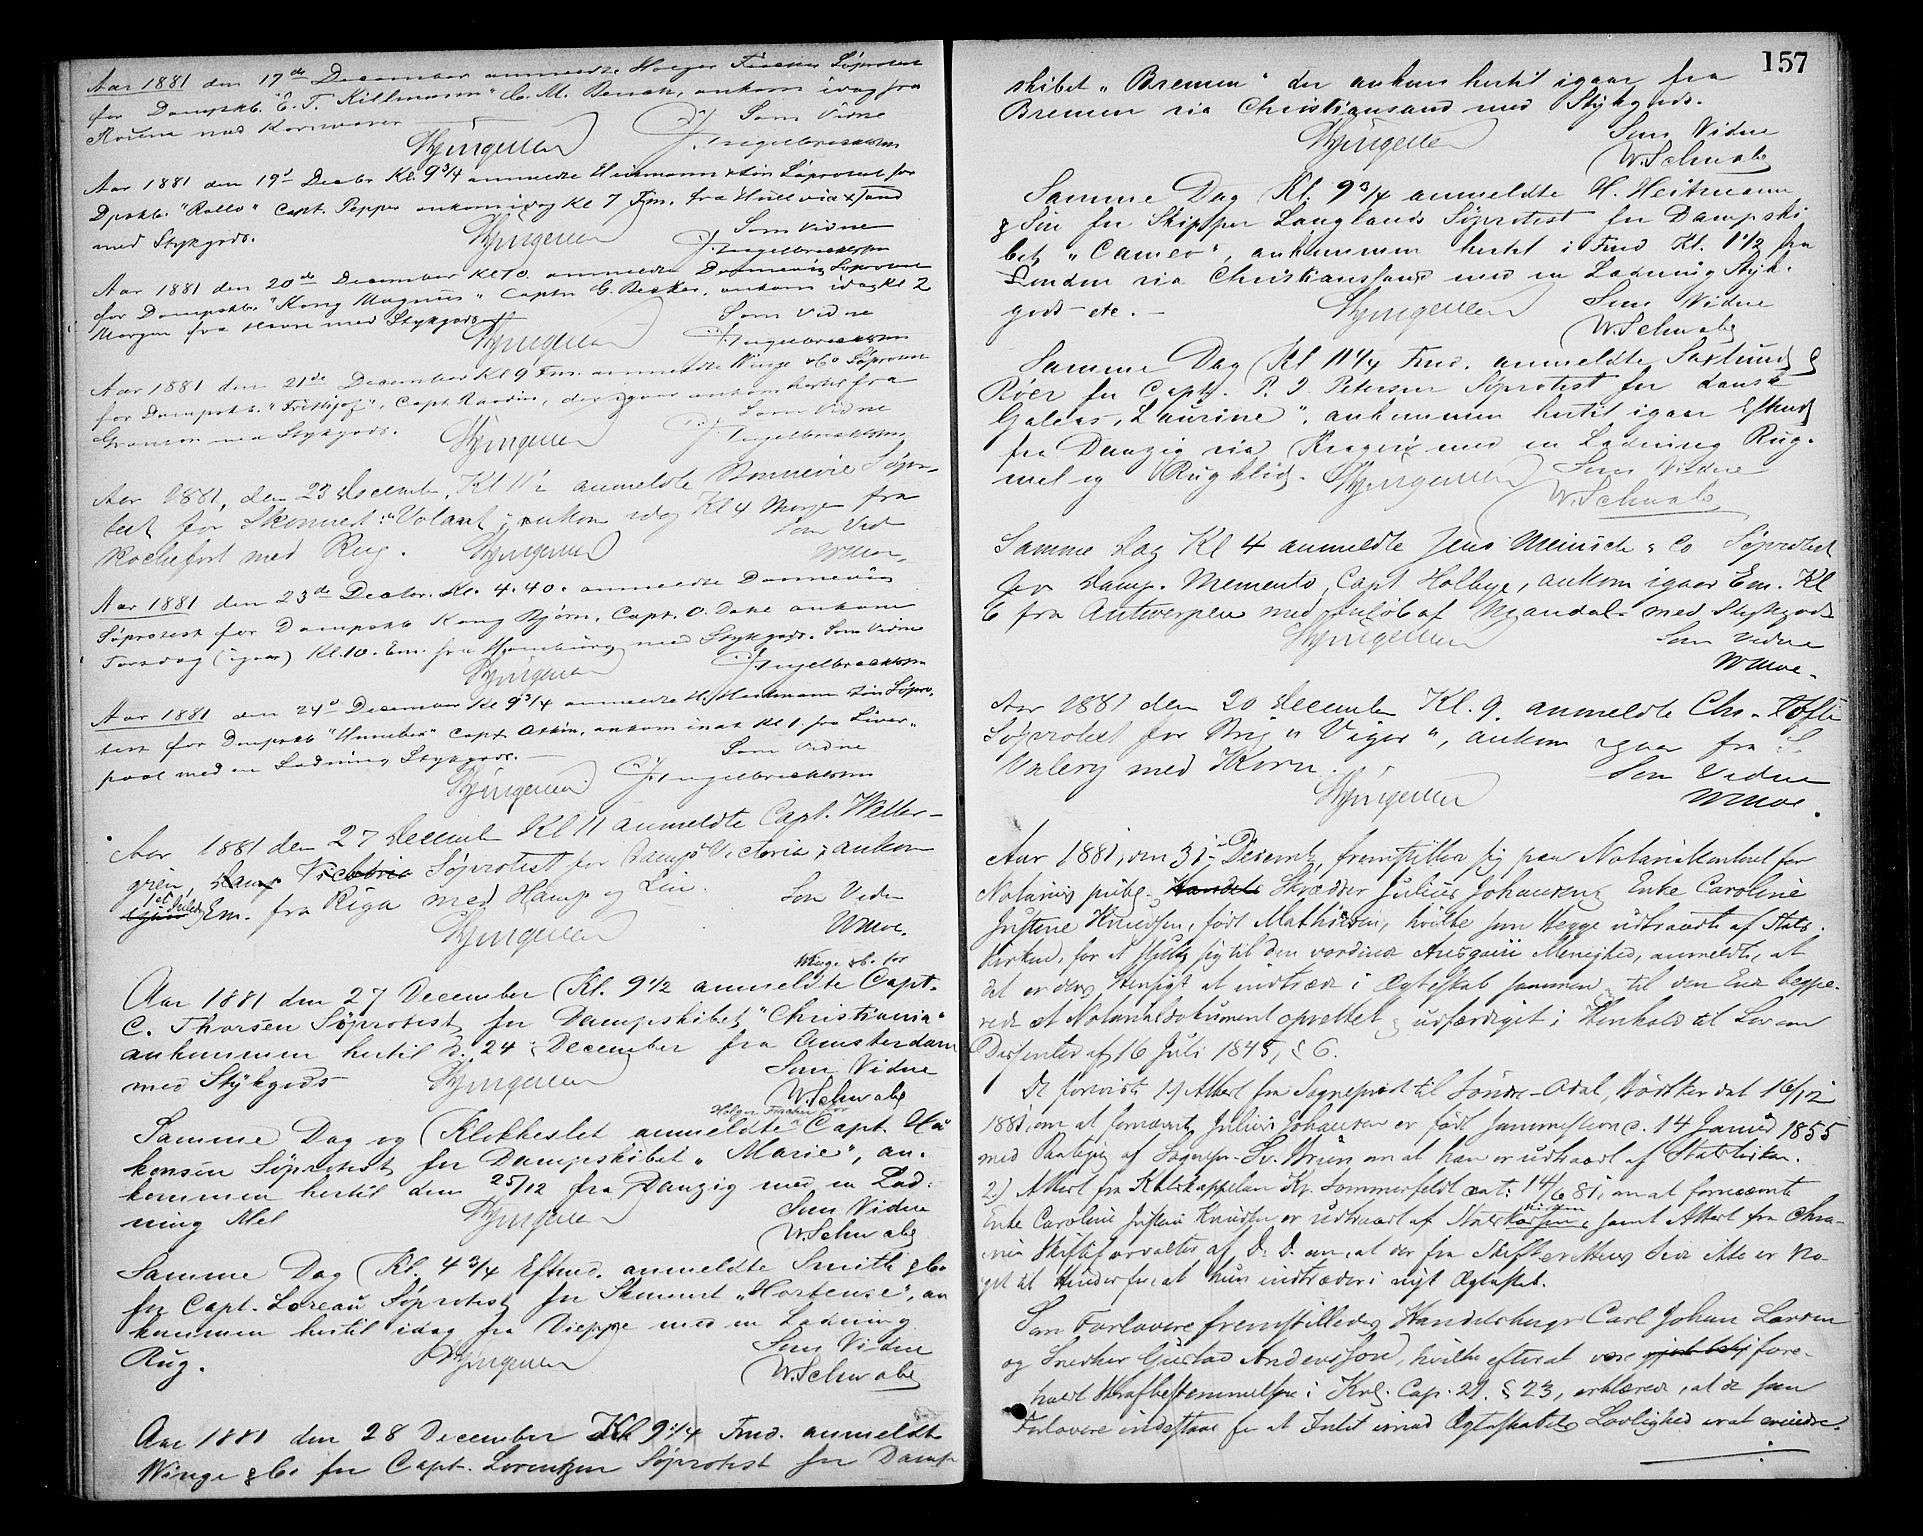 Aar 1881 den 17de December anmeldte Holger Fischer Søprotest
for Dampskb. "E. T. Killmann" C. M. Bench, ankom idag fra
Rouen med Kornvarer
Som Vidne
J. Ingelbrechtsen
Aar 1881 den 19d Decbr Kl. 9 3/4 anmeldte Heitmann & Søn Søprotest for
Dpskb. "Rollo" Capt. Pepper ankom idag Kl 7 Fm. fra Hull via X sand
med Stykgods.
Som Vidne
J. Ingelbrechtsen
Aar 1881 den 20de December Kl 10. anmeldte Bonnevie Søprotest
for Dampskb. "Kong Magnus" Captn G. Becker, ankom idag Kl 2
Morgen fra Havre med Stykgods
Som Vidne
J. Ingelbrechtsen
Aar 1881 den 21de December Kl 9 Fm. anmeldte Winge & Co Søprotest
for Dampskb. "Frithjof", Capt. der igaar ankom hertil fra
med Stykgods.
Som Vidne
J. Ingelbrechtsen
Aar 1881, den 23 December, Kl 11 1/2 anmeldte Bonnevie Søpro-
test for Skonnert "Volant", ankom idag Kl 4 Morgen fra
Rochefort med Rug.
Som Vidn
WMoe.
Aar 1881 den 23de Decbr. Kl. 4.40. anmeldte Bonnevie
Søprotest for Dampskb Kong Bjørn, Capt. O. Dahl ankom
Torsdag (igaar) Kl. 10. Em. fra Hamburg med Stykgods. Som Vidne
J. Ingelbrechtsen
Aar 1881 den 24d December Kl 9 3/4 anmeldte H. Heitmann & Søn Søpro-
test for Dampskb "Hunneber" Capt. ankom inat Kl 1. fra Liver-
pool med en Ladning Stykgods.
Som Vidne
J. Ingelbrechtsen
Aar 1881 den 27 December Kl 11 anmeldte Capt. Weller-
gren, Damp Victoria Søprotest for Damps Victoria, ankom
1ste Juledg
igaar Em. fra Riga med Hamp og Lin.
Som Vidn
WMoe.
Winge & Co. for
Aar 1881 den 27 December Kl. 9 1/2 anmeldte Capt.
C. Thorsen Søprotest for Dampskibet "Christiania"
ankommen hertil d. 24 December fra Amsterdam
med Stykgods
Som Vidne
W. Schwabe
Holger Fischer for
Samme Dag og Klokkeslet anmeldte Capt. Ha
konsen Søprotest for Dampskibet "Marie", an-
kommen hertil den 25/12 fra Danzig med en Lad-
ning Mel
Som Vidne
W. Schwabe
Samme Dag Kl. 4 3/4 Eftmd. anmeldte Smith & Co
for Capt. Loreau Søprotest for Skonnert "Hortense", an
kommen hertil idag fra Dieppe med en Ladning
Rug.
Som Vidne
W. Schwabe
Aar 1881 den 28 December Kl 9 1/4 Fmd. anmeldte
Winge & Co for Capt. Lorentzen Søprotest for Damp
157
skibet "Bremen" der ankom hertil igaar fra
Bremen via Christiansand med Stykgods.
Som Vidne
W. Schwabe
Samme Dag Kl. 9 3/4 anmeldte H. Heitmann
& Søn for Skipper Langlands Søprotest for Dampski
bet "Cameo", ankommen hertil i Fmd Kl. 1 1/2 fra
London via Christianssand med en Ladning Styk-
gods etc.
Som Vidne
W. Schwabe
Samme Dag Kl 11 1/4 Fmd. anmeldte Saxlund &
Röer for Captn. P. J. Petersen Søprotest for dansk
Galeas "Laurine", ankommen hertil igaar Eftmd
fra Danzig via Kragerø med en Ladning Rug-
mel og Rugklid.
Som Vidne
W. Schwabe
Samme Dag Kl 4 anmeldte Jens Meinich & Co Søprotest
for Damp. Memento, Capt Holbye, ankom igaar Em. Kl
6 fra Antwerpen med Anløb af Mandal med Stykgods
Som Vidne
WMoe.
Aar 1881 den 20 December Kl. 9. anmeldte Chr. Tofte
Søprotest for Brig "Viger", ankom igaar fra S.
Valery med Korn.
Som Vidne
WMoe.
Aar 1881, den 31- Decemb. fremstillede sig paa Notarialkontoret for
Notarius publ. Handels Skrædder Julius Johansen og Enke Caroline
Justine Knudsen, født Mathisen, hvilke som begge udtraadte af Stats-
kirken, for at slutte sig til den vordende Ansgarii Menighed, anmeldte, at
det er deres Hensigt at indtræde i Ægteskab sammen, til den Ende begjæ-
rede et Notarialdokument oprettet og udfærdiget i Henhold til Lov om
Dissenter af 16 Juli 1845, § 6.
De foreviste 1.) Attest fra Sognepræst til Søndre-Odal, dat 16/12
1881, om at fornævnte Julius Johansen er født sammesteds d. 14 Januar 1855
med Paategn. af Sognepr. Sv. Bruun om at han er udtraadt af Statskirken.
2.) Attest fra Kaldskappellan Kr. Sommerfeldt, dat: 14/6 81, om at fornævnte
Enke Caroline Justine Knudsen er udtraadt af Statskirken, samt Attest fra Chra-
nia Skifteforvalter af D. D. om, at der fra Skifterettens Side ikke er No-
get til Hinder for, at hun indtræder i nyt Ægteskab.
Som Forlovere fremstillede sig Handelsborger Carl Johan Larsen
og Snedker Gustav Andersson, hvilke efter at være gjort bekj fore-
holdt Strafbestemmelsen i Krl. Cap. 21. § 23, erklærede, at de som
Forlovere indestaae for at Intet imod Ægteskabets Lovlighed er at erindre.